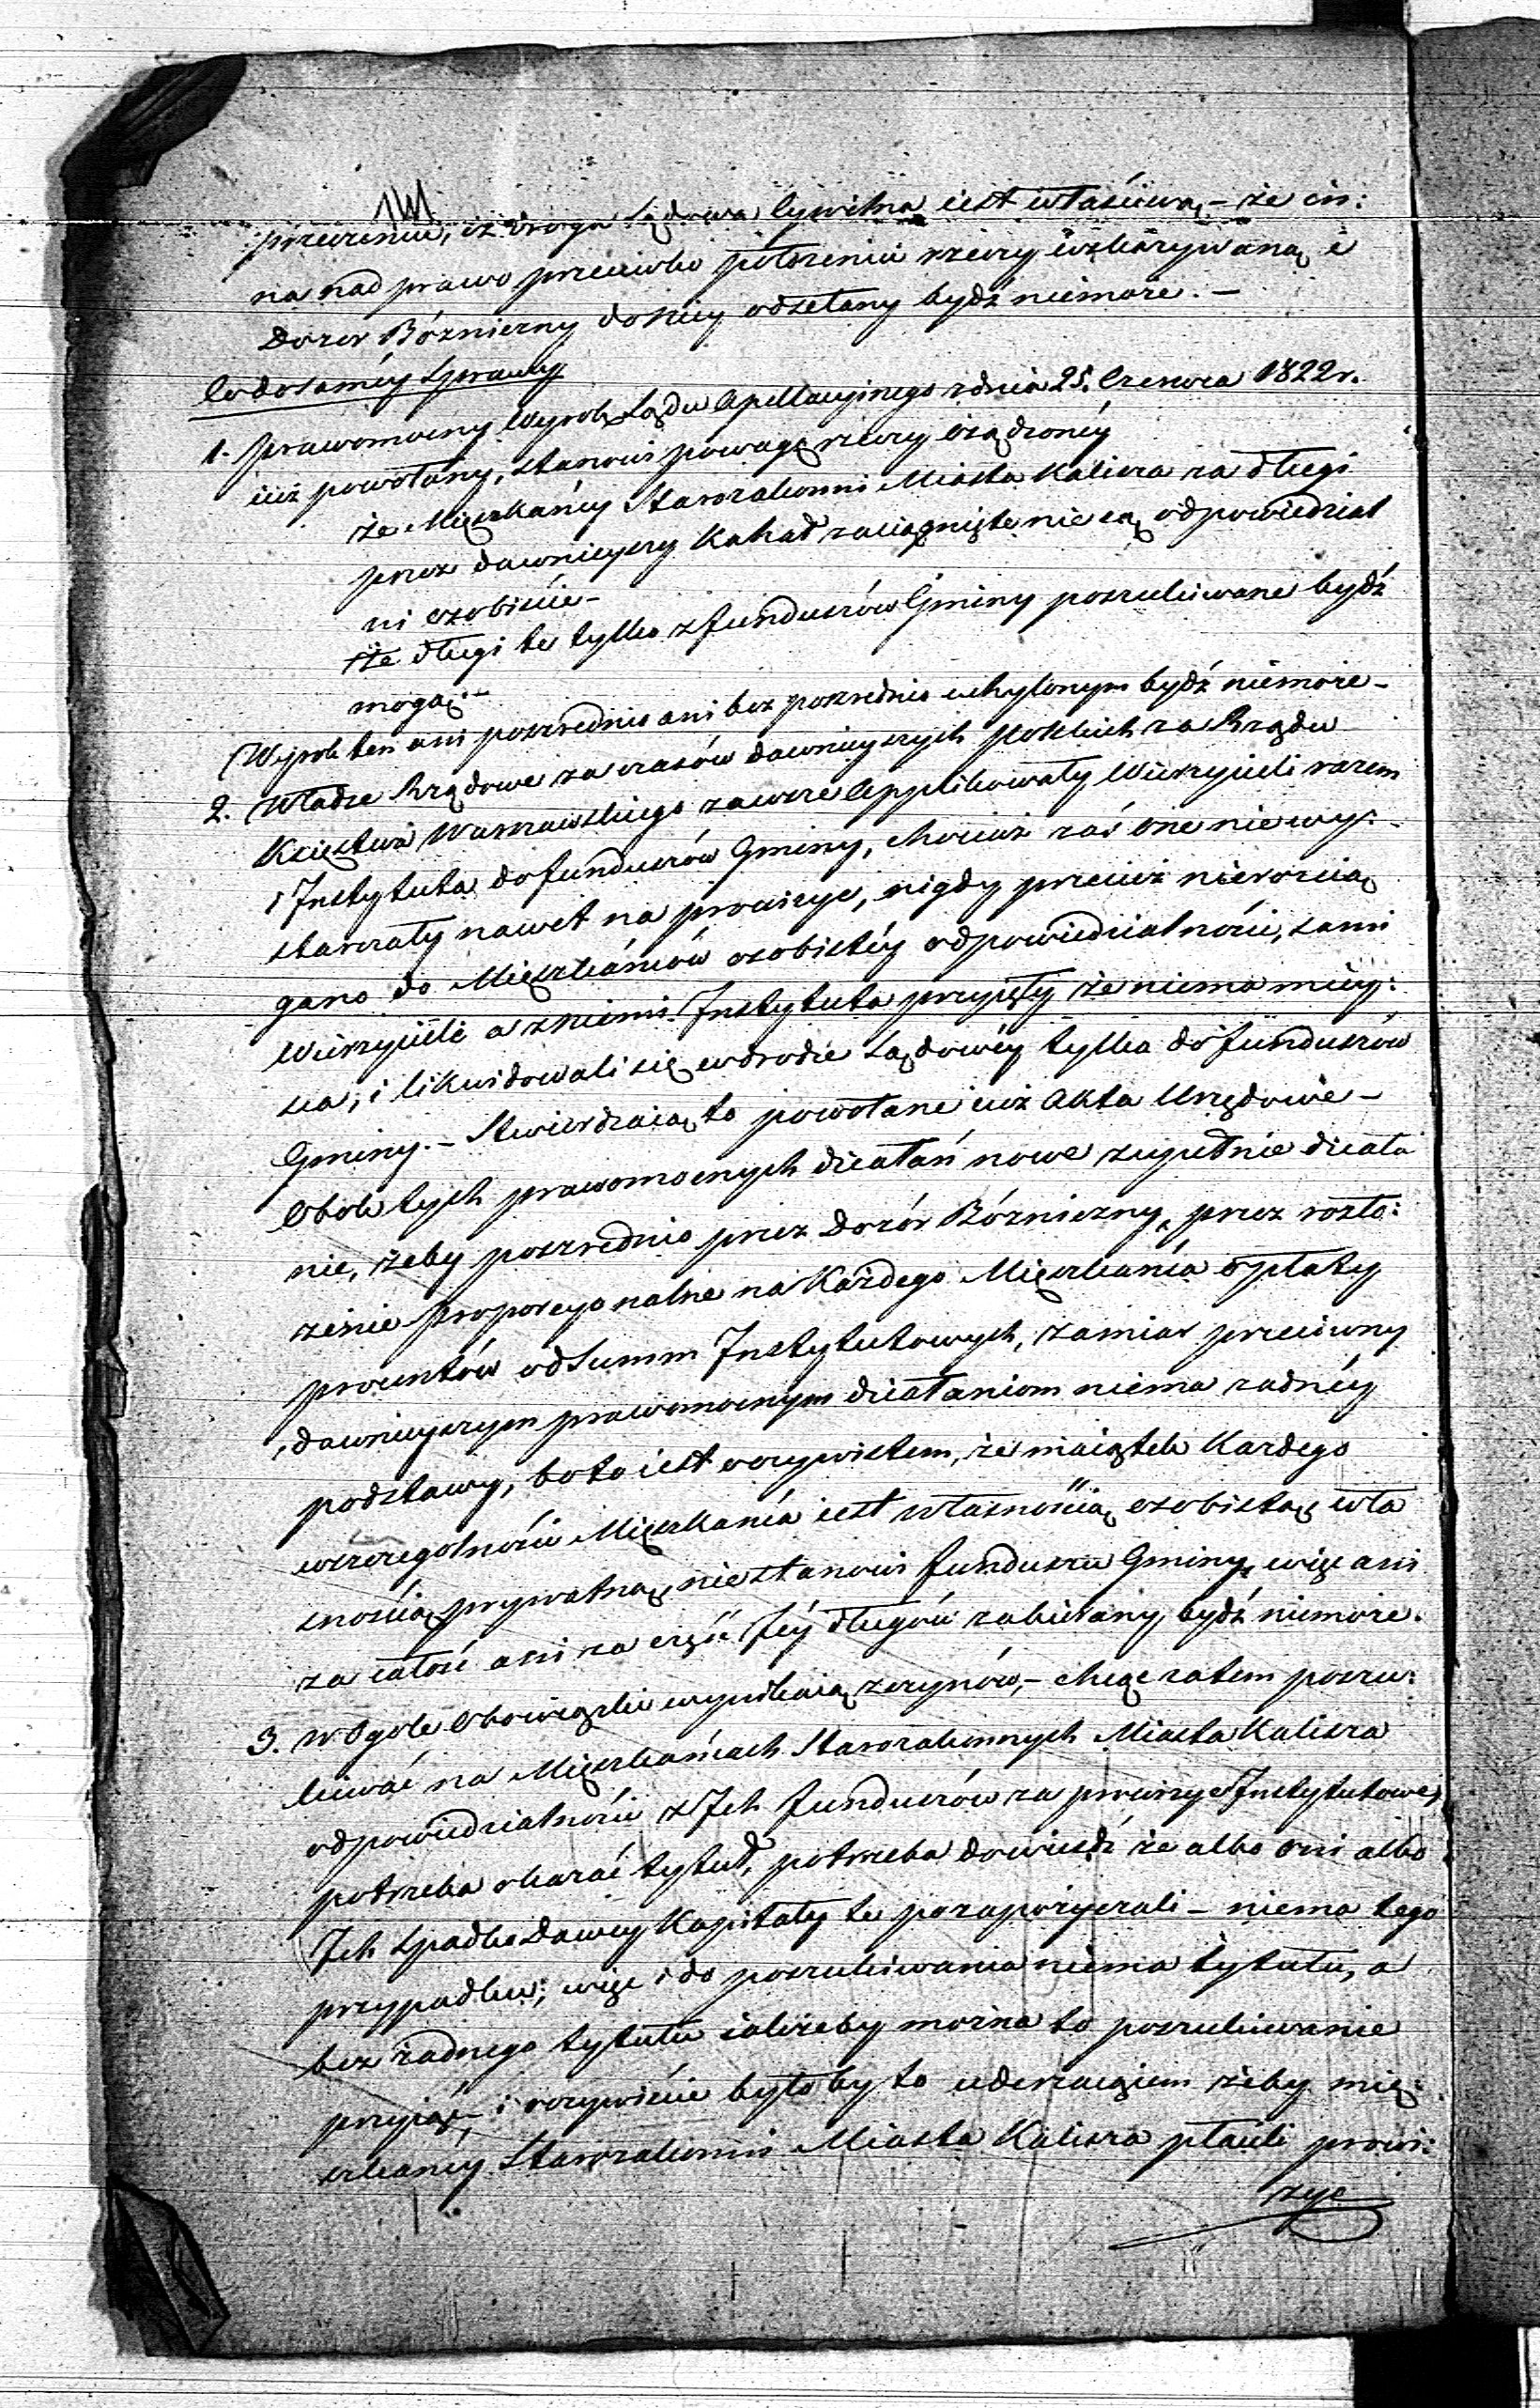 przeczenie, iż droga Sądowa Cywilna iest właściwą – że in:
na nad prawo przeciwko położeniu rzeczy wskazywaną i
Dozor Bóżniczny do niey odsełany bydź niemoże. –
Co do saméy Sprawy
1. Prawomocny Wyrok Sądu Apellacyinego z dnia 25. Czerwca 1822 r.
iuż powołany, stanowi powagę rzeczy osądzonéy
że Mięszkańcy Starozakonni Miasta Kalisza za długi
przez dawnieyszy Kahał zaciągnięte nie są odpowiedzial
ni osobiście –
że długi te tylko z funduszów Gminy poszukiwane bydź
mogą. –
Wyrok ten ani pośrednio ani bezpośrednio uchylonym bydź niemoże –
2. Władze Rządowe za czasów dawnieyszych Polskich za Rządu
Księztwa Warszawskiego zawsze Applikowały Wierzycieli razem
i Instytuta do funduszów Gminy, chociaż zaś one nie wy:
starczały nawet na prowizye, nigdy przecież nierością
gano do Mięszkańców osobistéy odpowiedzialności, sami
Wierzyciele a z niemi Instytuta przyięły że niema miey:
sca, i likwidowali się w drodze Sądowéy tylko do funduszów
Gminy. – Stwierdzaią to powołane iuż Akta Urzędowe –
Obok tych prawomocnych działań nowe zupełnie działa
nie, żeby pośrednio przez Dozór Bóżniczny, przez rozło:
żenie proporcyonalne na Każdego Mięszkańca opłaty
procentów od Summ Instytutowych, zamiar przeciwny
dawnieyszym prawomocnym działaniom niema żadnéy
podstawy, bo to iest oczywistem, że maiątek Każdego
wszczególności Mięszkańca iest własnością osobistą wła
snością prywatną, niestanowi funduszu Gminy, więc ani
za całość ani za część Jéy długów zabierany bydź niemoże.
3. W Ogóle Obowiązki wynikaią z czynów, – chcąc zatem poszu:
kiwać na Mięszkańcach Starozakonnych Miasta Kalisza
odpowiedzialności z Ich funduszów za prowizye Instytutowe,
potrzeba okazać tytuł, potrzeba dowieść że albo oni albo
Ich Spadkodawcy Kapitały te pozapożyczali – niema tego
przypadku; więc i do poszukiwania niema tytułu, a
bez żadnego tytułu iakżeby można to poszukiwanie
przyiąć, i oczywiście byłoby to uderzaiącem żeby mię:
szkańcy Starozakonni Miasta Kalisza płacili prowi:
zye